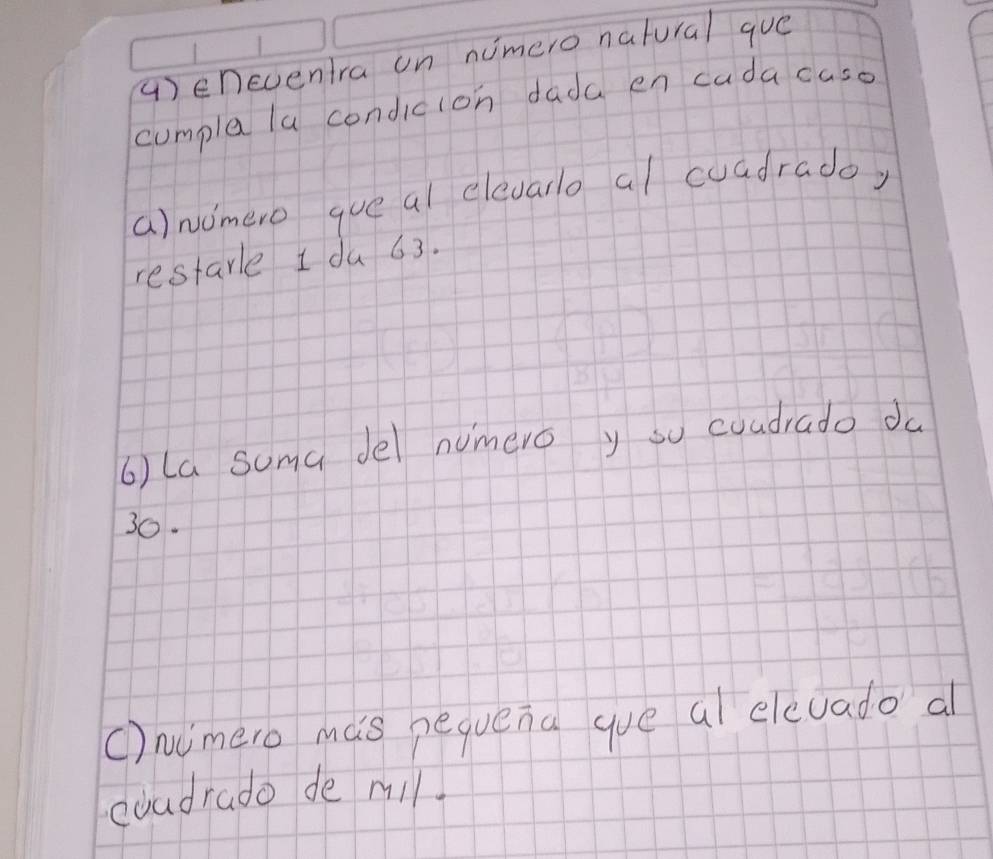 4) encuentra un número natural que
cumpla la condición dada en cada caso
a) número que al elevarlo al cuadrado y
restarle 1 da 63.
b) La suma del número y su cuadrado da
30.
c) número más pequeña que al elevado al
cuadrado de mil.